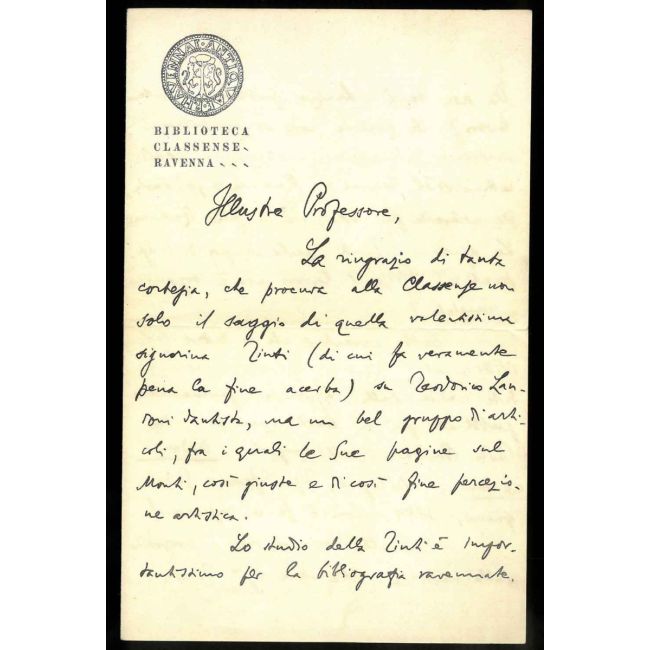 RAVENNAE ANTIQUAE
BIBLIOTECA
CLASSENSE
RAVENNA
Illustre Professore,
La ringrazio di tanta
cortesia, che procura alla Classense non
solo il saggio di quella valentissima
signorina Zinti (di cui fa veramente
pena la fine acerba) su Teodorico Lan-
doni dantista, ma un bel gruppo di arti-
coli, fra i quali le Sue pagine sul
Monti, così giuste e di così fine percezio-
ne artistica.
Lo studio della Zinti è impor-
tantissimo per la bibliografia ravennate.